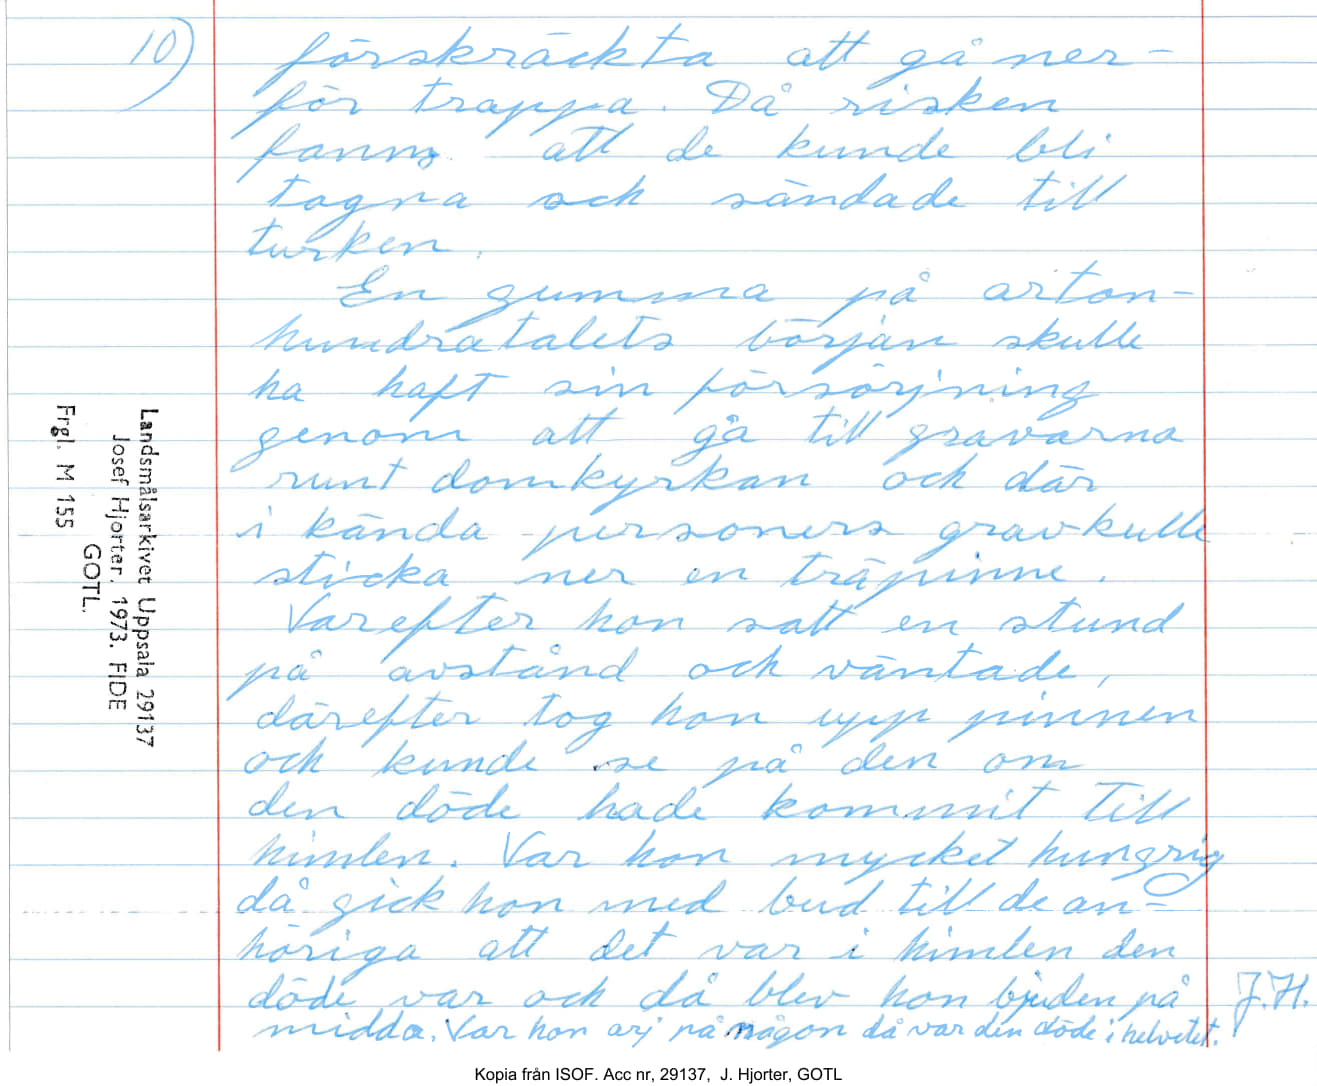 10)
förskräckta att gå ner-
för trappa. Då risken
fanns att de kunde bli
togna och sändade till
turken.
En gumma på arton-
hundratalets början skulle
ha haft sin försörjning
genom att gå till gravarna
runt domkyrkan och där
i kända personers gravkulle
sticka ner en träpinne.
Varefter hon satt en stund
på avstånd och väntade,
därefter tog hon upp pinnen
och kunde se på den om
den döde hade kommit till
himlen. Var hon mycket hungrig
då gick hon med bud till de an-
höriga att det var i himlen den
döde var och då blev hon bjuden på
midda. Var hon arj på någon då var den döde i helvetet.
J.H.
Landsmålsarkivet Uppsala 29137
Josef Hjorter. 1973. FIDE
GOTL.
Frgl. M 155
Kopia från ISOF. Acc nr, 29137, J. Hjorter, GOTL